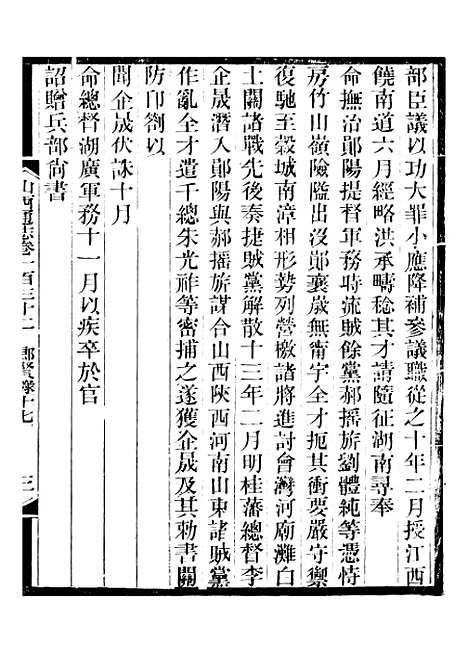 部臣議以功大罪小應降補參議職從之十年二月授江西
饒南道六月經略洪承疇稔其才請隨征湖南尋奉
命撫治鄖陽提督軍務時流賊餘黨郝搖旂劉體純等憑恃
房竹山嶺險隘出沒鄖襄歲無甯宇全才扼其衝要嚴守禦
復馳至穀城南漳相形勢列營檄諸將進討會灣河廟灘白
土關諸戰先後奏捷賊黨解散十三年二月明桂藩總督李
企晟潛入鄖陽與郝搖旂謀合山西陝西河南山東諸賊黨
作亂全才遣千總朱光祚等密捕之遂獲企晟及其勅書關
防印劄以
聞企晟伏誅十月
命總督湖廣軍務十一月以疾卒於官
詔贈兵部尚書
山西通志卷一百三十二 鄉賢錄十七 三